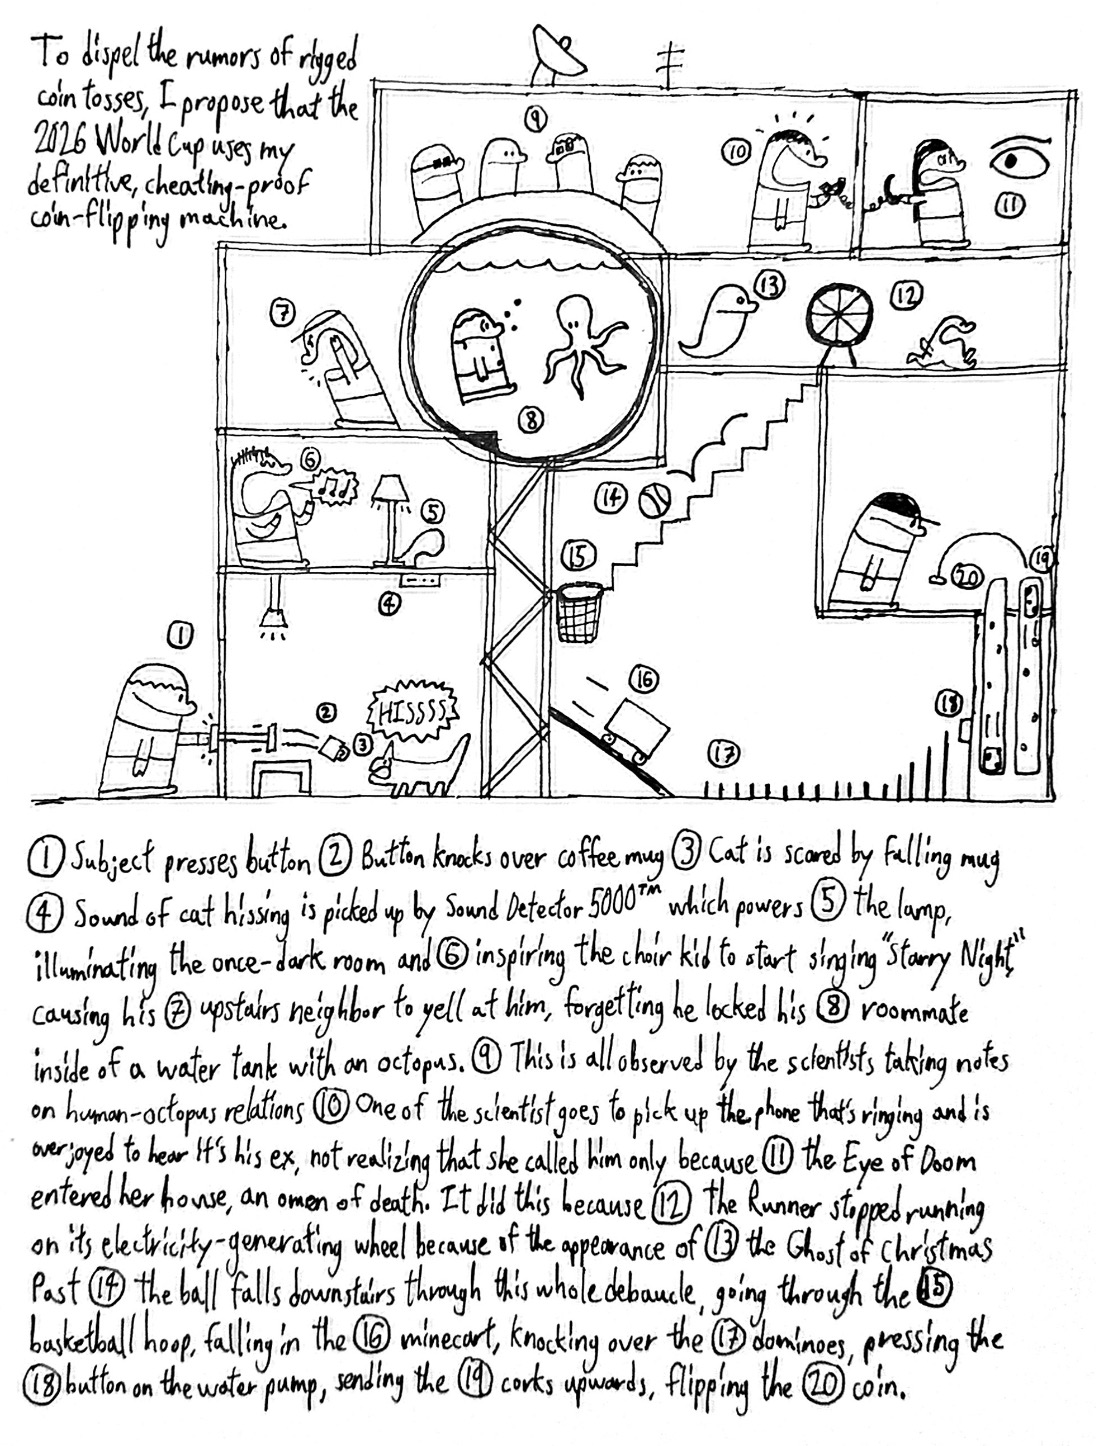 To dispel the rumors of rigged
coin tosses, I propose that the
2026 World Cup uses my
definitive, cheating-proof
coin-flipping machine.
9
10
11
13
12
7
8
6
5
14
15
4
20
19
1
16
2
HISSSS
18
3
17
1 Subject presses button 2 Button knocks over coffee mug 3 Cat is scared by falling mug
4 Sound of cat hissing is picked up by Sound Detector 5000™ which powers 5 the lamp,
illuminating the once-dark room and 6 inspiring the choir kid to start singing "Starry Night"
causing his 7 upstairs neighbor to yell at him, forgetting he locked his 8 roommate
inside of a water tank with an octopus. 9 This is all observed by the scientists taking notes
on human-octopus relations 10 One of the scientist goes to pick up the phone that's ringing and is
overjoyed to hear it's his ex, not realizing that she called him only because 11 the Eye of Doom
entered her house, an omen of death. It did this because 12 the Runner stopped running
on its electricity-generating wheel because of the appearance of 13 the Ghost of Christmas
Past 14 the ball falls downstairs through this whole debaucle, going through the 15
basketball hoop, falling in the 16 minecart, knocking over the 17 dominoes, pressing the
18 button on the water pump, sending the 19 corks upwards, flipping the 20 coin.